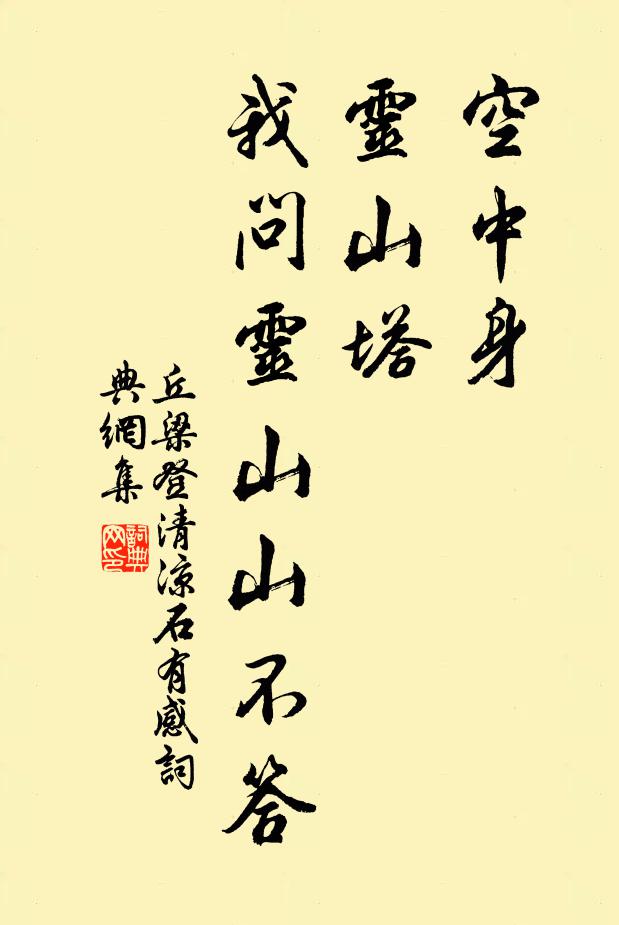 空中身
靈山塔
我問靈山山不答
丘梁登清涼石有感詞
典網集
詞典網印